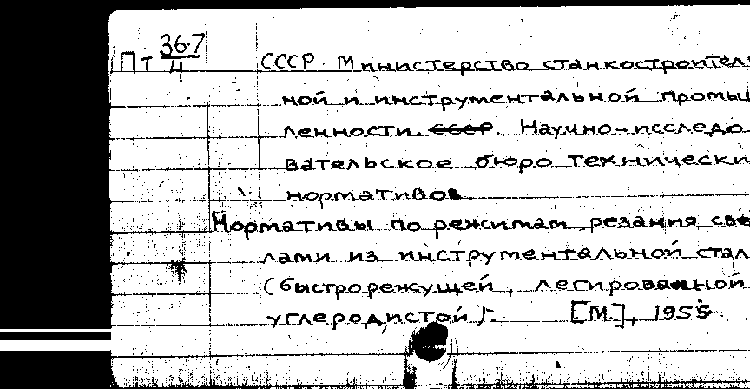 Пт 36-7/4 СССР. Министерство станкостроитель
ной и инструментальной промыш
ленности СССР. Научно-исследо
вательское бюро технически
нормативов.
Нормативы по режимам резания све
лами из инструментальной стал
(быстрорежущей, легированной
углеродистой). [М.], 1955.